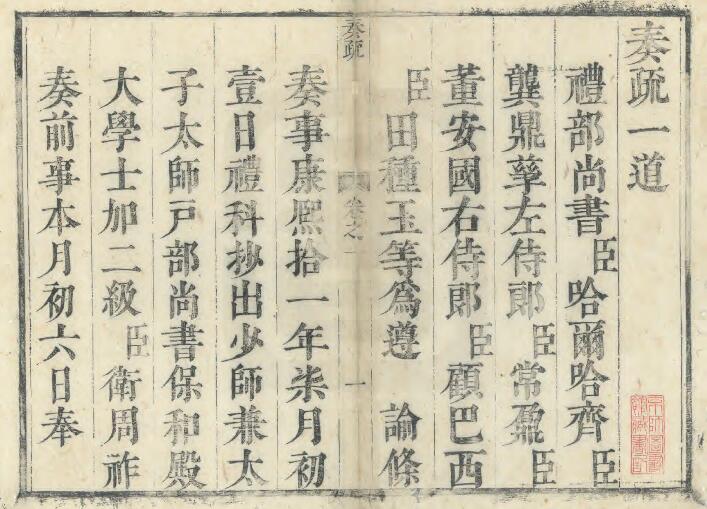 奏疏一道
禮部尚書臣哈爾哈齊臣
龔鼎孳左侍郎臣常鼐臣
董安國右侍郎臣顧巴西
臣田種玉等爲遵 諭條
奏疏
卷之一
一
奏事康熈拾一年柒月初
壹日禮科抄出少師兼太
子太師戸部尚書保和殿
大學士加二級臣衛周祚
奏前事本月初六日奉